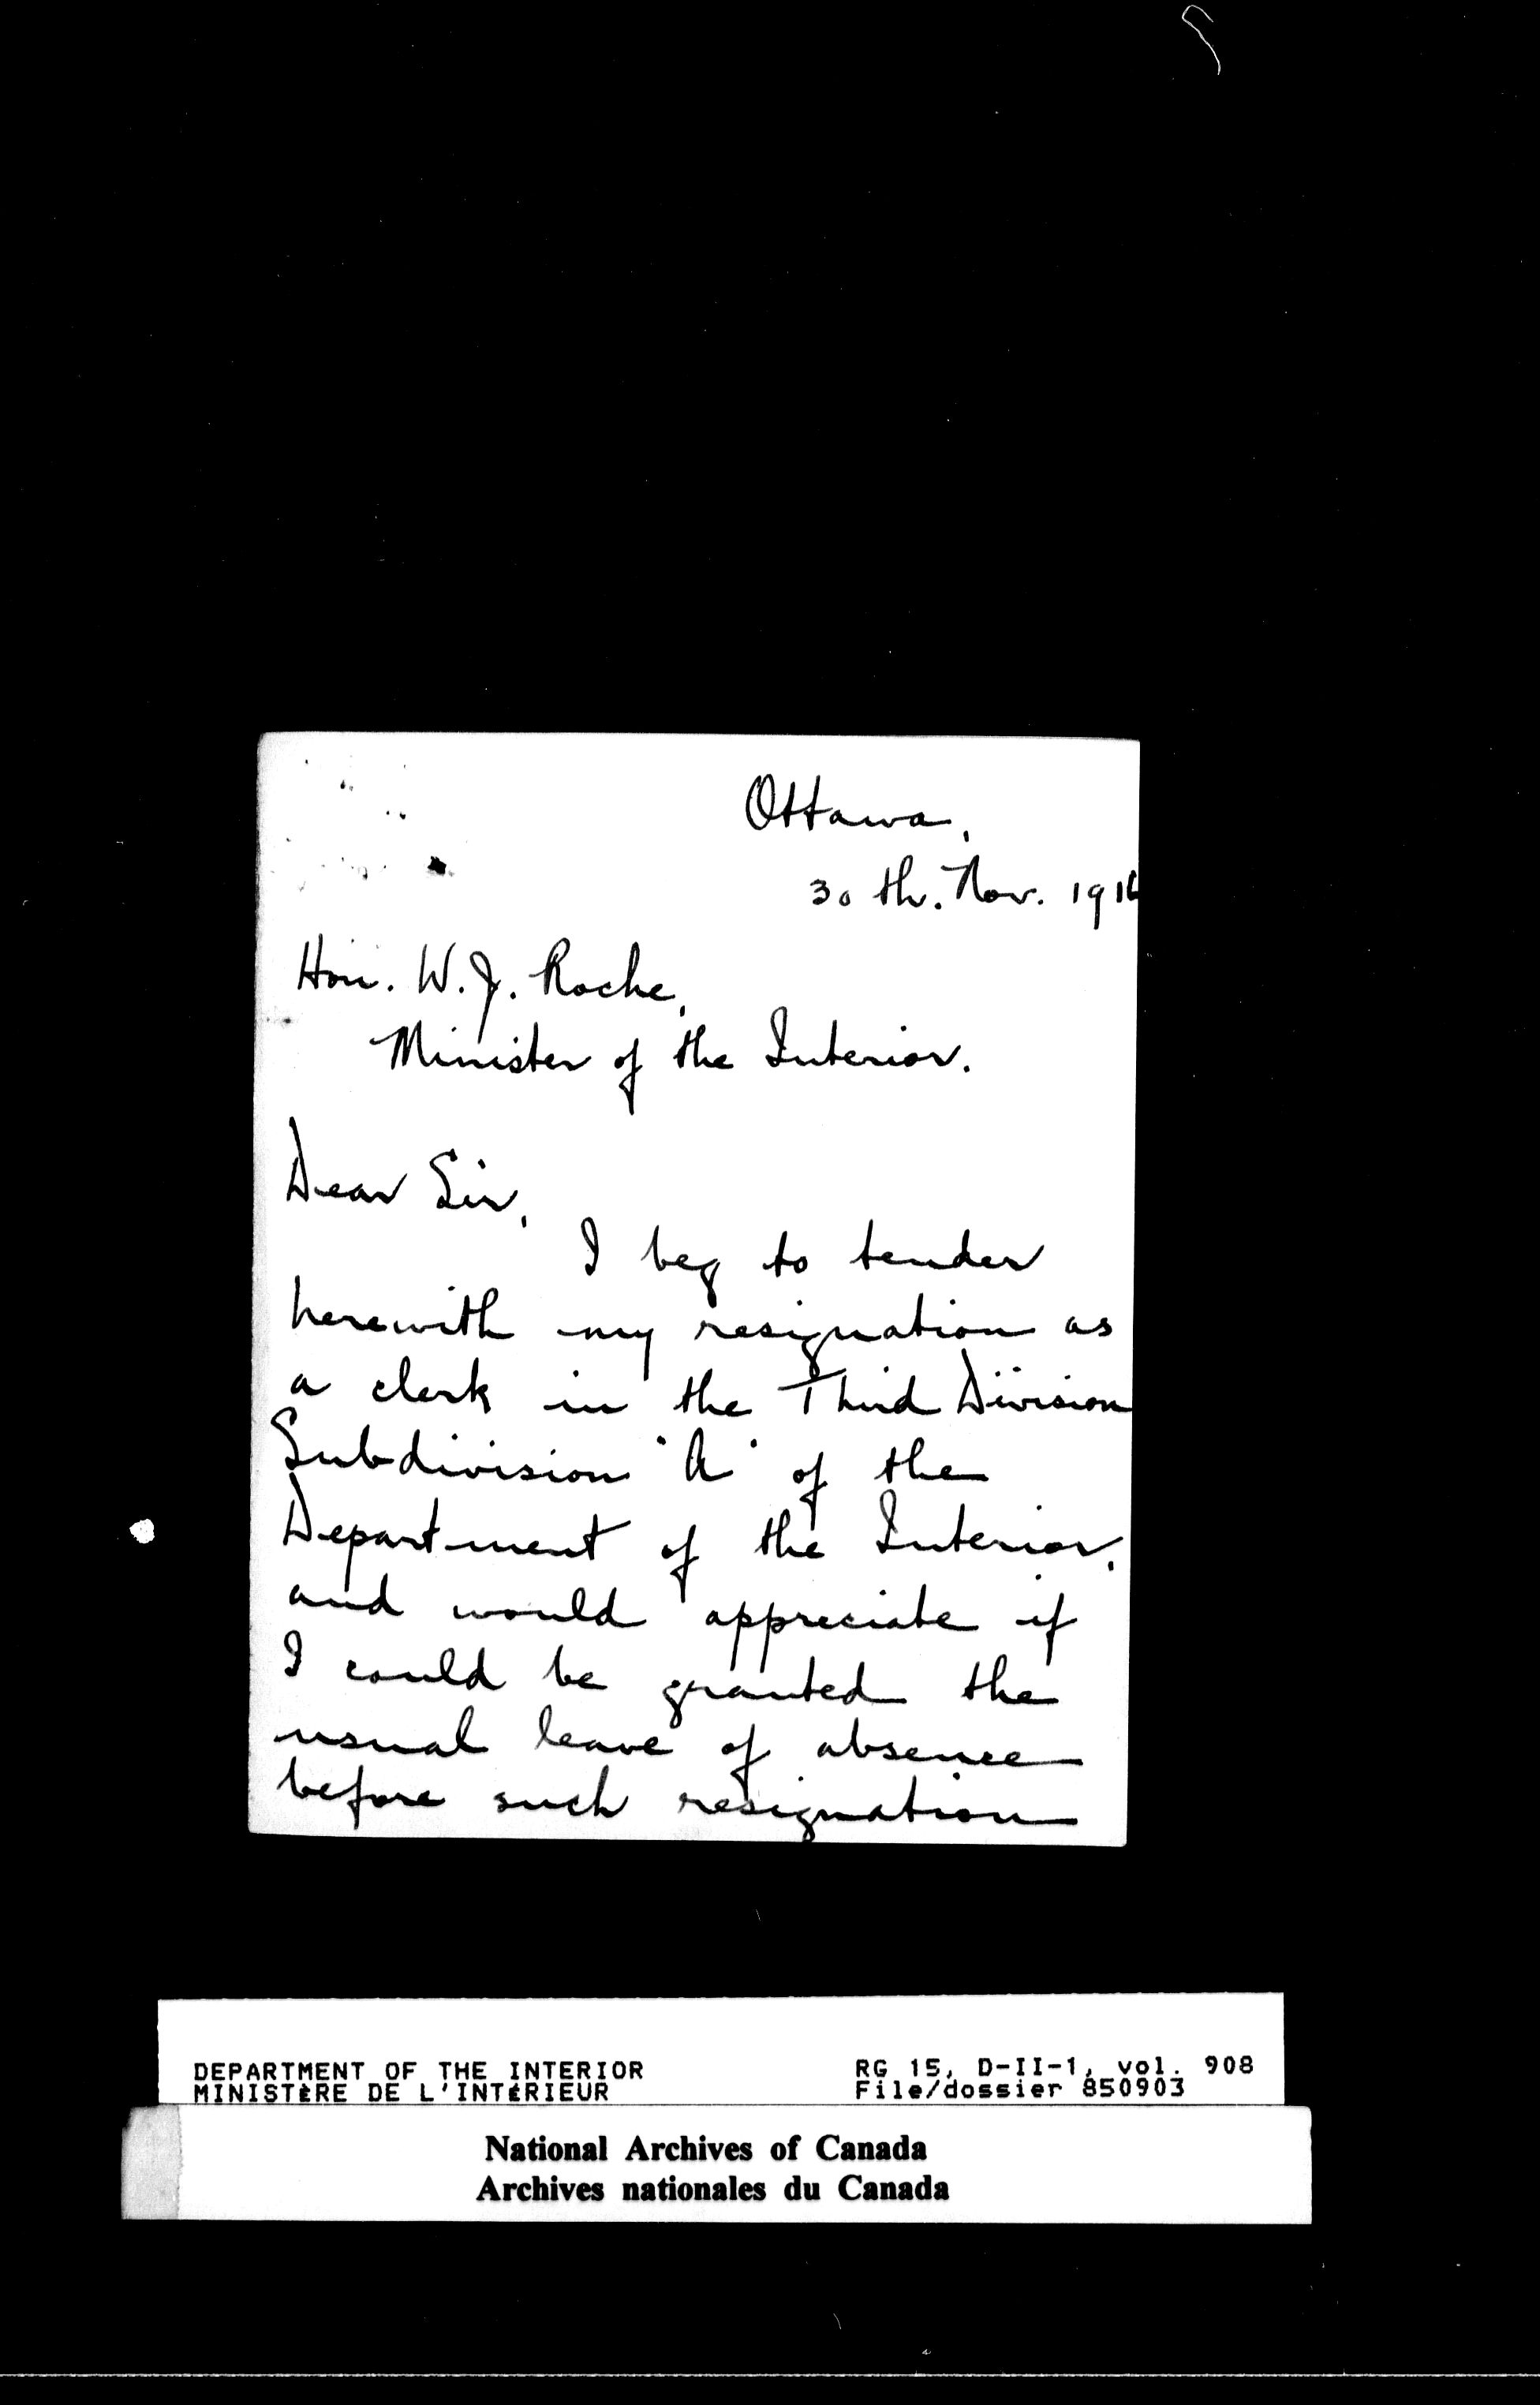 Ottawa,
30 th. Nov.
Hon. W. J. Roche,
Minister of the Interior.
Dear Sir,
I beg to tender
herewith my resignation as
a clerk in the Third Division
Subdivision "A" of the
Department of the Interior,
and would appreciate if
I could be granted the
usual leave of absence
before such resignation
DEPARTMENT OF THE INTERIOR
MINISTÈRE DE L'INTÉRIEUR
RG 15, D-II-1, vol. 908
File/dossier 850903
National Archives of Canada
Archives nationales du Canada